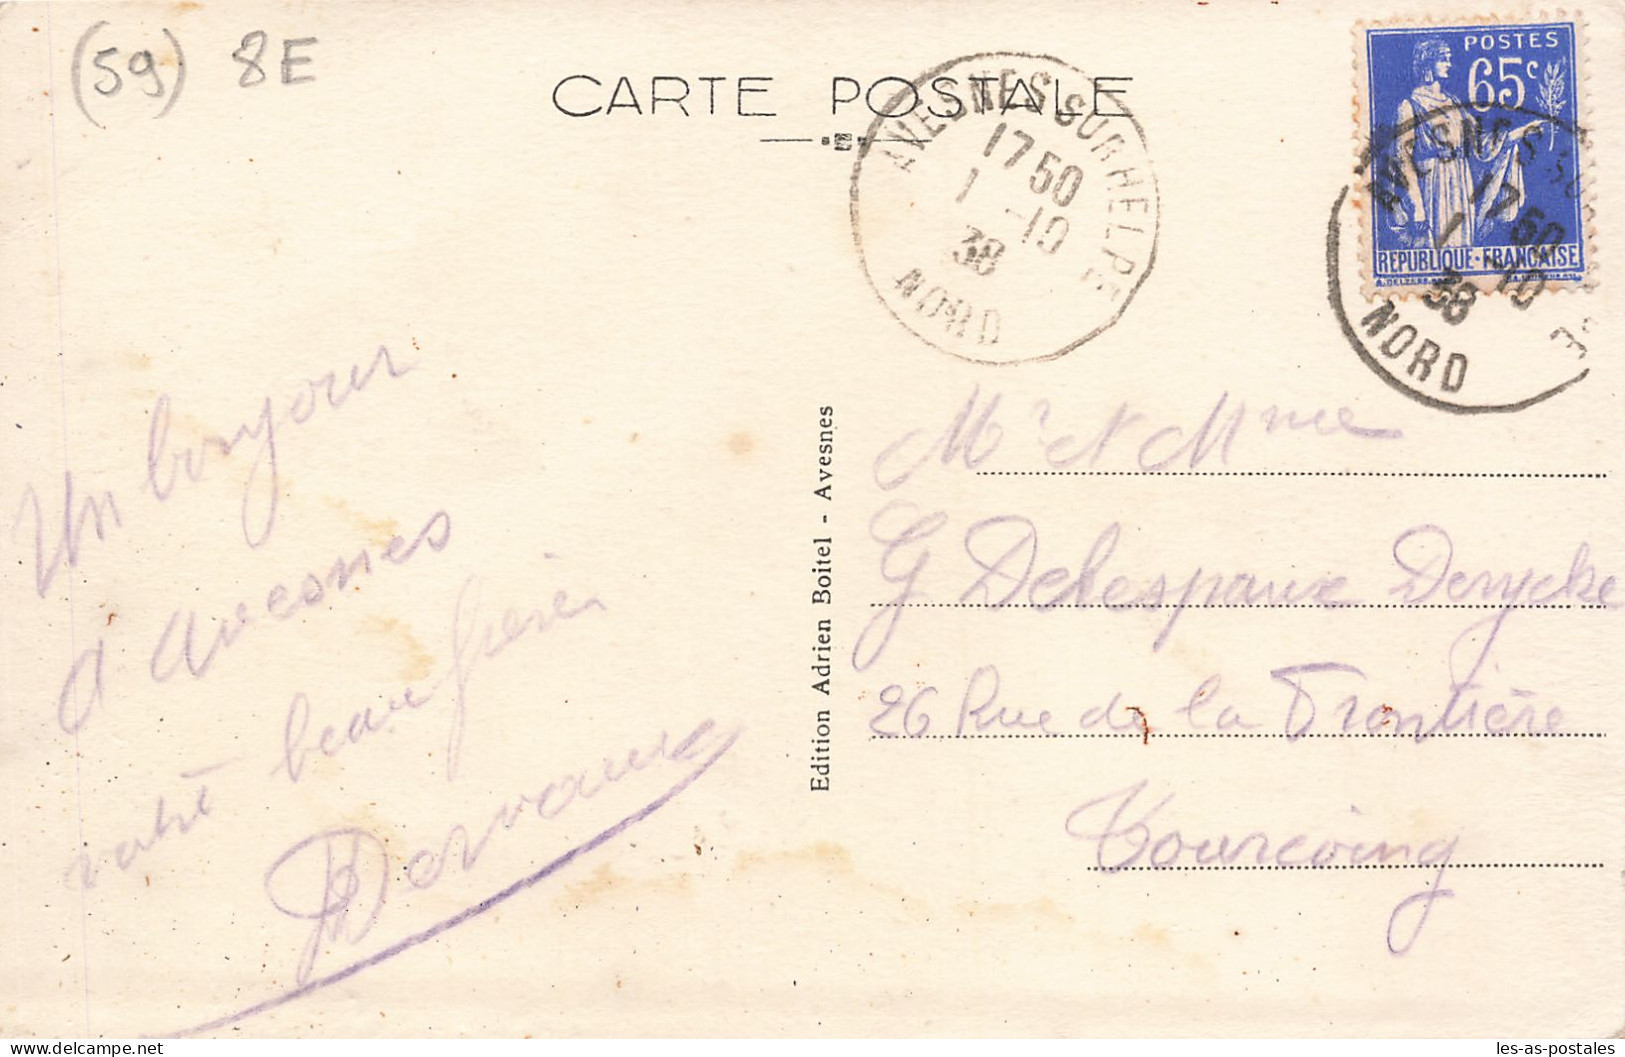 (59) 8E
CARTE POSTALE
AVESNES SUR HELPE
17 50
1 -10
38
NORD
POSTES
65c
REPUBLIQUE·FRANCAISE
AVESNES SU
17 50
1 -10
38
NORD
Un bonjour
d avesnes
votre beau frère
Dervaux
Edition Adrien Boitel - Avesnes
Mr et Mme
G Delespaux Derycke
26 Rue de la Frontière
Tourcoing
les-as-postales